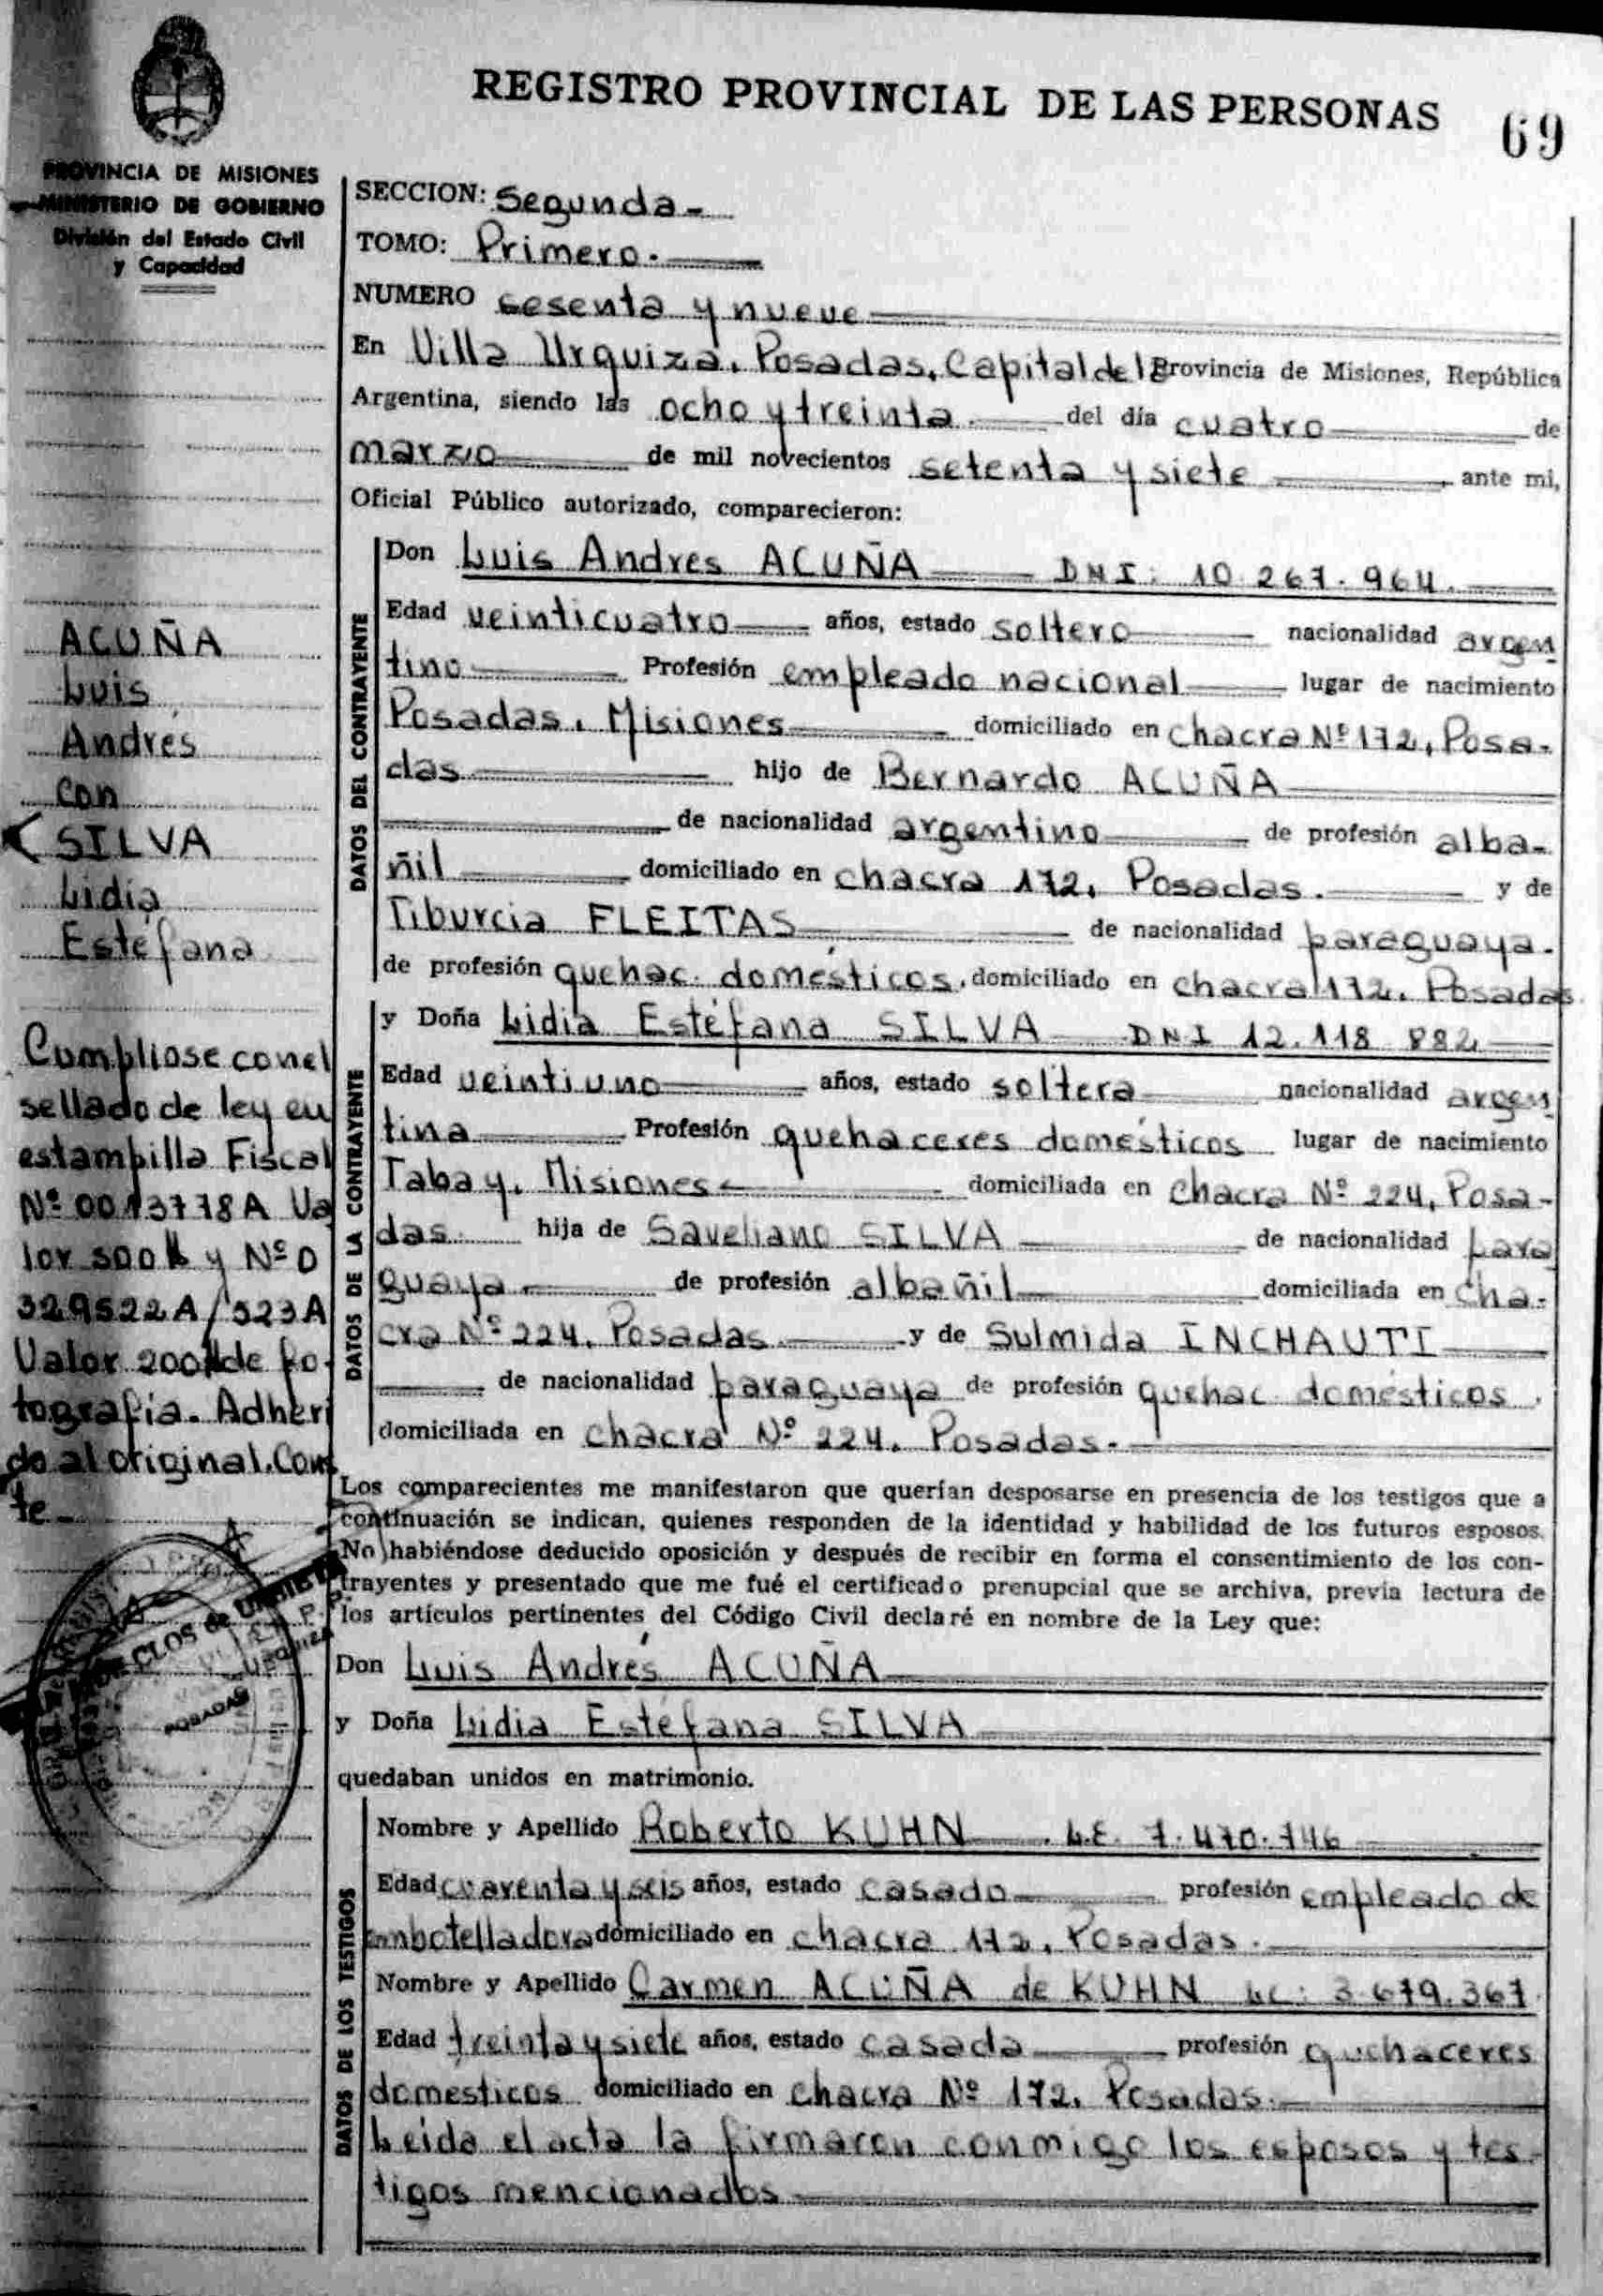 REGISTRO PROVINCIAL DE LAS PERSONAS 69
PROVINCIA DE MISIONES
MINISTERIO DE GOBIERNO
División del Estado Civil
y Capacidad
SECCION: Segunda-
TOMO: Primero.
NUMERO sesenta y nueve
En Villa Urquiza. Posadas. Capital de la Provincia de Misiones, República
Argentina, siendo las ocho y treinta del día cuatro de
marzo de mil novecientos setenta y siete ante mi,
Oficial Público autorizado, comparecieron:
DATOS DEL CONTRAYENTE
Don Luis Andres ACUÑA DNI: 10.267.964.
Edad veinticuatro años, estado soltero nacionalidad argen
tino Profesión empleado nacional lugar de nacimiento
Posadas. Misiones domiciliado en chacra Nº 172, Posa-
das hijo de Bernardo ACUÑA
de nacionalidad argentino de profesión alba-
ñil domiciliado en chacra 172. Posadas. y de
Tiburcia FLEITAS de nacionalidad paraguaya.
de profesión quehac. domésticos. domiciliado en chacra 172. Posadas
DATOS DE LA CONTRAYENTE
y Doña Lidia Estéfana SILVA DNI 12.118.882
Edad veintiuno años, estado soltera nacionalidad argen
tina Profesión quehaceres domésticos lugar de nacimiento
Tabay. Misiones domiciliada en chacra Nº 224, Posa-
das. hija de Saveliano SILVA de nacionalidad para
guaya de profesión albañil domiciliada en cha-
cra Nº 224. Posadas. y de Sulmida INCHAUTI
de nacionalidad paraguaya de profesión quehac. domésticos.
domiciliada en chacra Nº 224. Posadas.
Los comparecientes me manifestaron que querían desposarse en presencia de los testigos que a
continuación se indican, quienes responden de la identidad y habilidad de los futuros esposos.
No habiéndose deducido oposición y después de recibir en forma el consentimiento de los con-
trayentes y presentado que me fué el certificado prenupcial que se archiva, previa lectura de
los artículos pertinentes del Código Civil declaré en nombre de la Ley que:
Don Luis Andrés ACUÑA
y Doña Lidia Estéfana SILVA
quedaban unidos en matrimonio.
DATOS DE LOS TESTIGOS
Nombre y Apellido Roberto KUHN L.E. 7.470.746
Edad cuarenta y seis años, estado casado profesión empleado de
embotelladora domiciliado en chacra 172, Posadas.
Nombre y Apellido Carmen ACUÑA de KUHN LC: 3.679.367
Edad treinta y siete años, estado casada profesión quehaceres
domesticos domiciliado en chacra Nº 172. Posadas.
Leida el acta la firmaron conmigo los esposos y tes-
tigos mencionados
ACUÑA
Luis
Andrés
con
SILVA
Lidia
Estéfana
Cumpliose con el
sellado de ley en
estampilla Fiscal
Nº 0013778A Va
lor 500 y Nº 0
329522A/523A
Valor 200 de fo-
tografía. Adheri
do al original. Cons
te
POSADAS